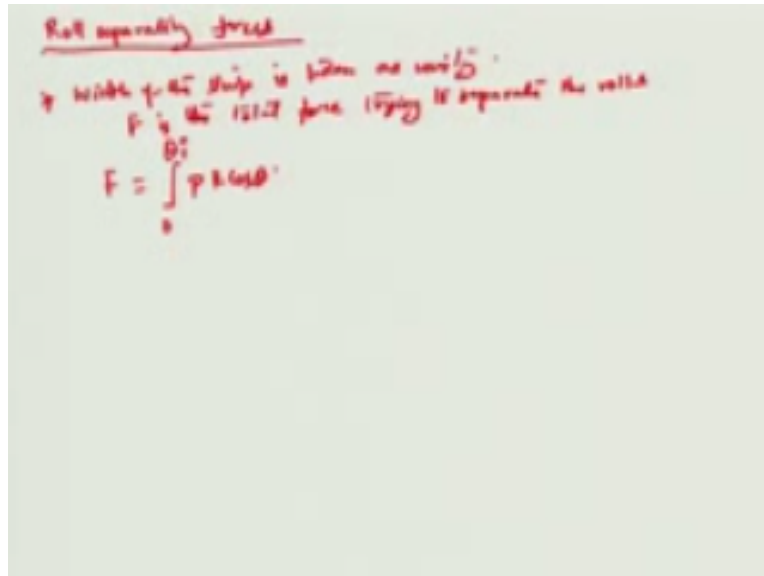 Roll separating force
* Width of the strip is taken as unity.
F is the total force trying to separate the rolls
θi
F = ∫ p R cosθ
0